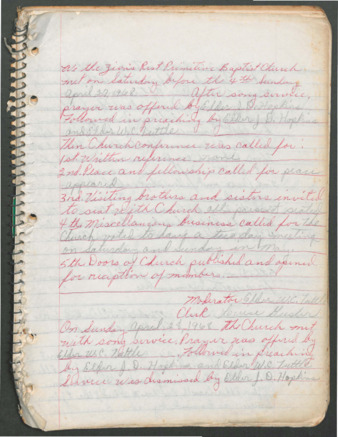 We the Zion's Rest Primitive Baptist Church
met on Saturday before the 4th Sunday
April 22, 1968. After song service,
prayer was offered by Elder J. D. Hopkins
Followed in preaching by Elder J. D. Hopkins
and Elder W.C. Tuttle.
Then Church conference was called for.
1st Written reference
2nd Peace and fellowship called for peace
3rd Visiting brothers and sisters invited
to seat with Church
4th Miscellaneous business called for the
Church voted to have a two day meeting
on Saturday and Sunday in
5th Doors of Church published and opened
for reception of members.
Moderator Elder W.C. Tuttle
Clerk
On Sunday April 1968 the Church met
with song service. Prayer was offered by
Elder W.C. Tuttle. Followed in preaching
by Elder J. D. Hopkins and Elder W.C. Tuttle
Service was dismissed by Elder J. D. Hopkins